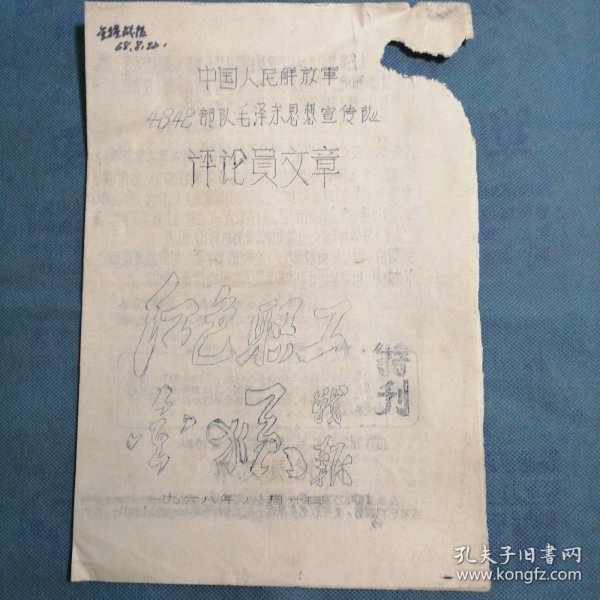 金猴战报
68.8.20.
中国人民解放军
4842部队毛泽东思想宣传队
评论员文章
红色职工
金猴战报
特刊
一九六八年八月廿日
孔夫子旧书网
www.kongfz.com